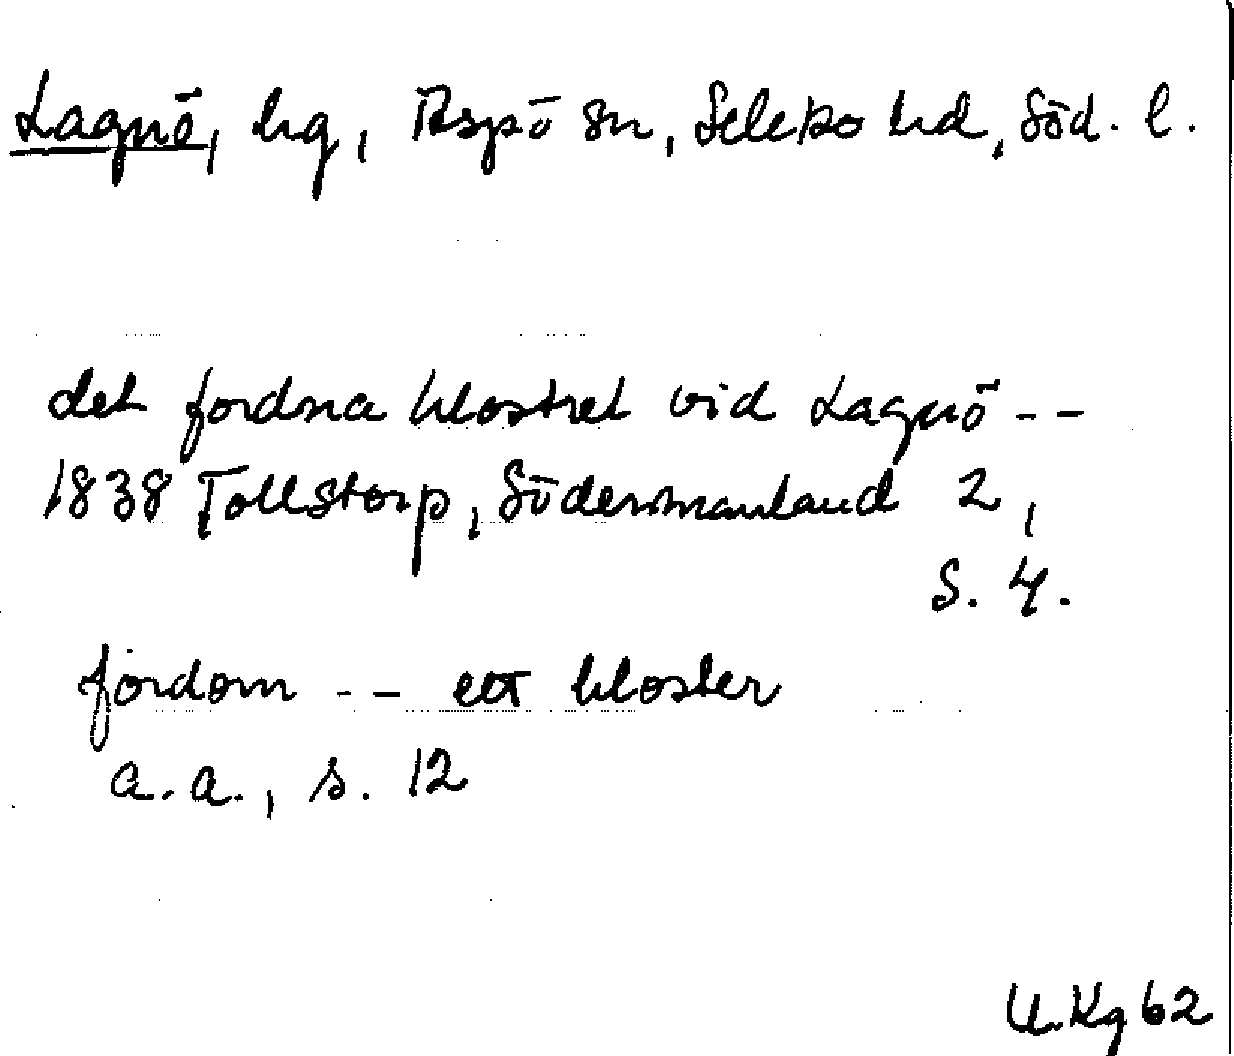 Lagnö, hg, Aspö sn, Selebo hd, Söd. l.
det fordna klostret vid Lagnö --
1838 Tollstorp, Södermanland 2,
S. 4.
fordom -- ett kloster
a.a., s. 12
U.Kg 62